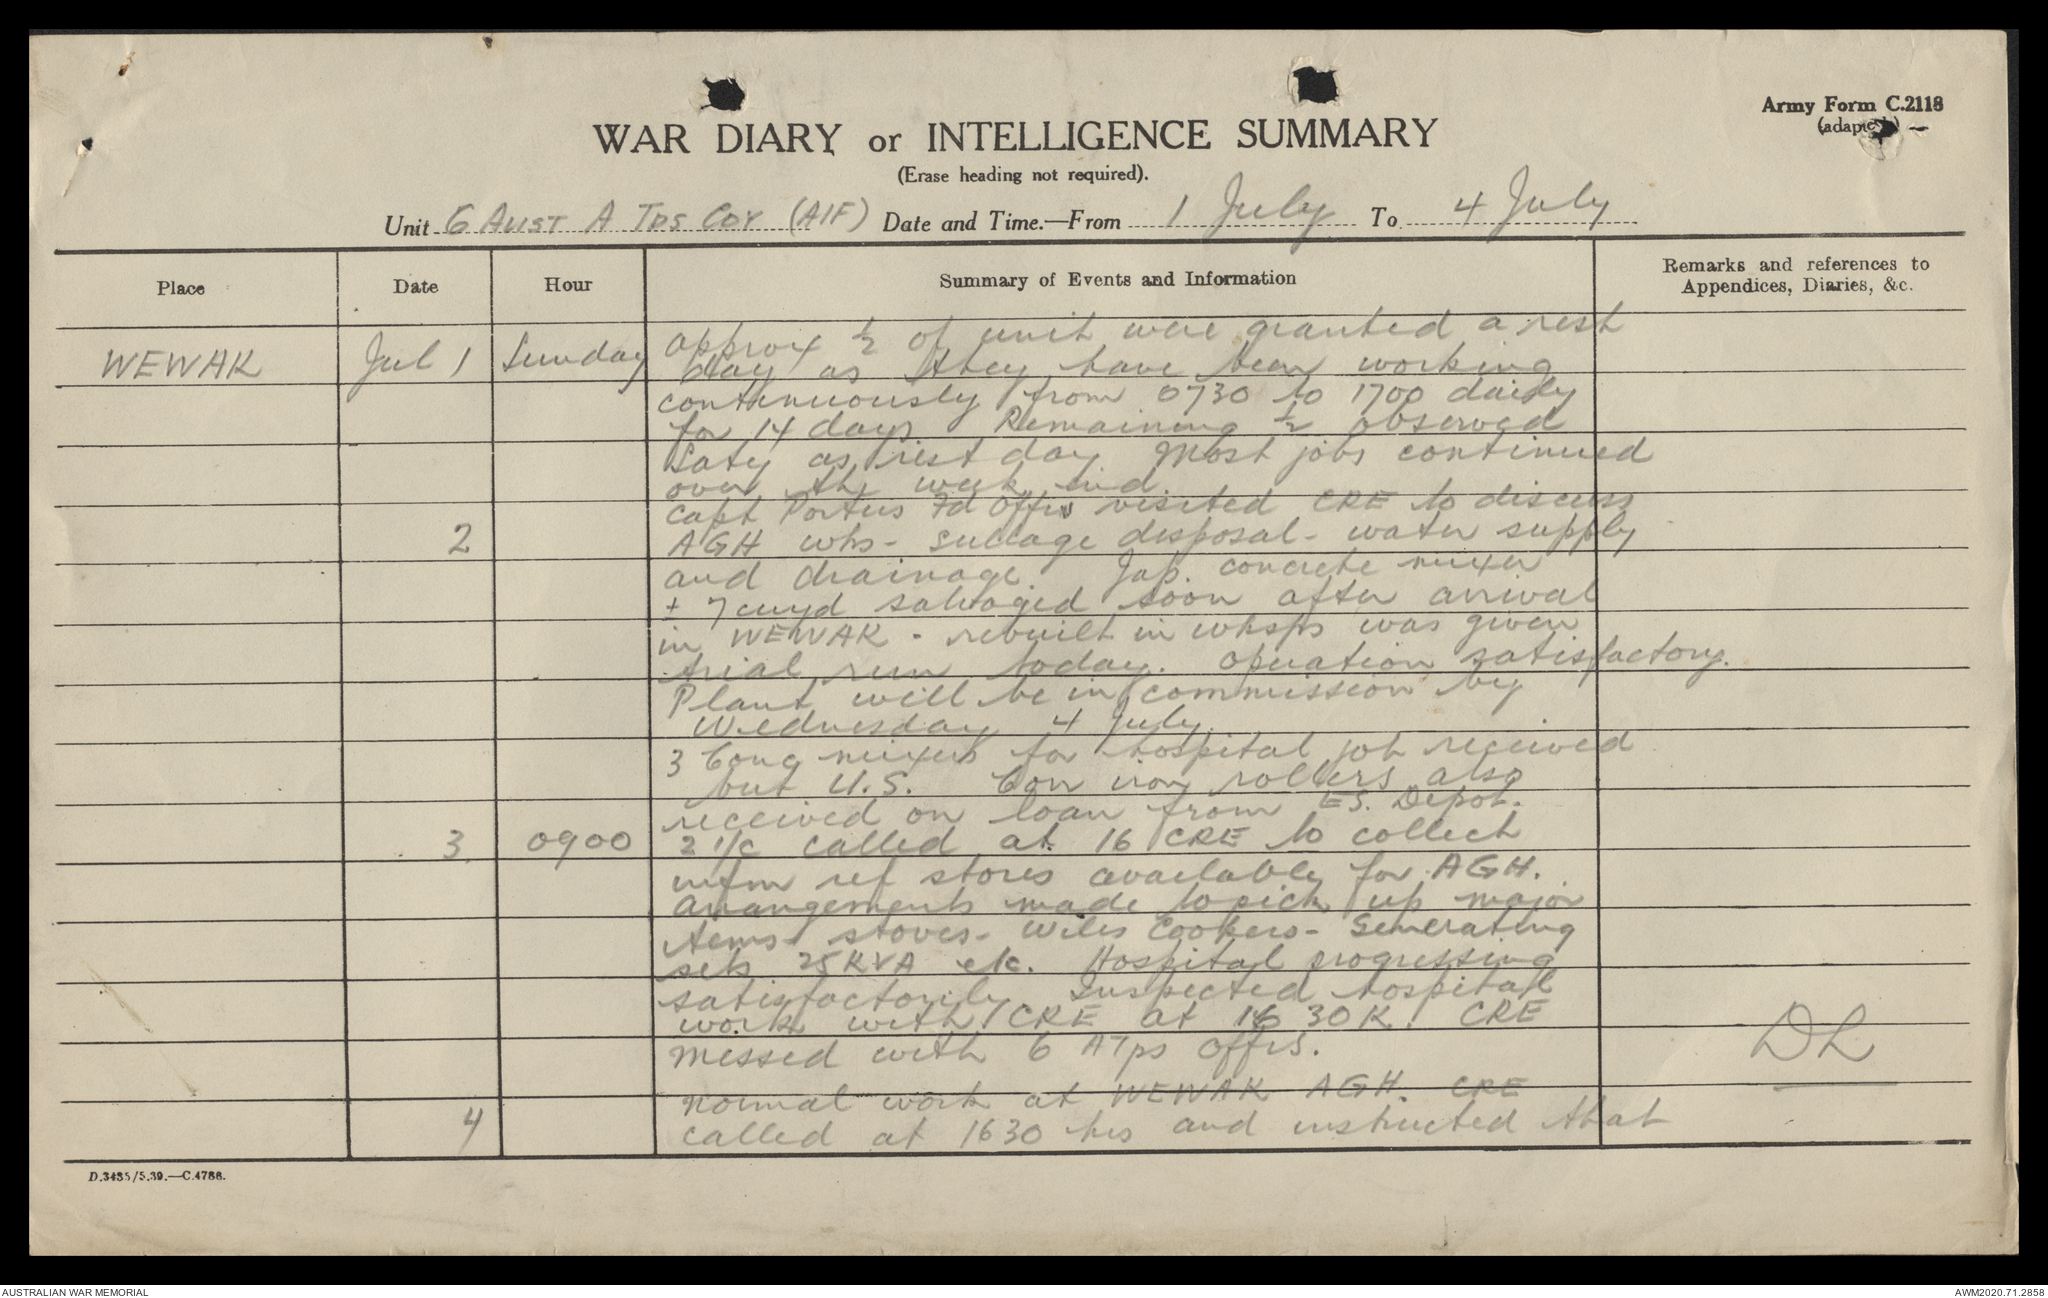 Army Form C.2118
(adapted)
WAR DIARY or INTELLIGENCE SUMMARY
(Erase heading not required).
Unit 6 AUST A TPS COY (AIF) Date and Time.—From 1 July To 4 July
Place Date Hour Summary of Events and Information Remarks and references to
Appendices, Diaries, &c.
WEWAK Jul 1 Sunday Approx ½ of unit were granted a rest
day as they have been working
continuously from 0730 to 1700 daily
for 14 days Remaining ½ observed
Saty as rest day. Most jobs continued
over the week end.
2 Capt Porteus Fd Offr visited CRE to discuss
AGH wks - sullage disposal - water supply
and drainage. Jap. concrete mixer
± 7 cuyd salvaged soon after arrival
in WEWAK - rebuilt in whsps was given
trial run today. Operation satisfactory.
Plant will be in commission by
Wednesday 4 July.
3 Conc mixers for hospital job received
but U.S. Corr iron rollers also
received on loan from E.S. Depot.
3. 0900 2 i/c called at 16 CRE to collect
infm ref stores available for AGH.
Arrangements made to pick up major
items - stoves - Wiles Cookers - Generating
sets 25 KVA etc. Hospital progressing
satisfactorily. Inspected hospital
work with CRE at 1630K. CRE
messed with 6 A Tps Offrs.
DL
4 Normal work at WEWAK AGH. CRE
called at 1630 hrs and instructed that
D.3435/5.39.—C.4788.
AUSTRALIAN WAR MEMORIAL AWM2020.71.2858